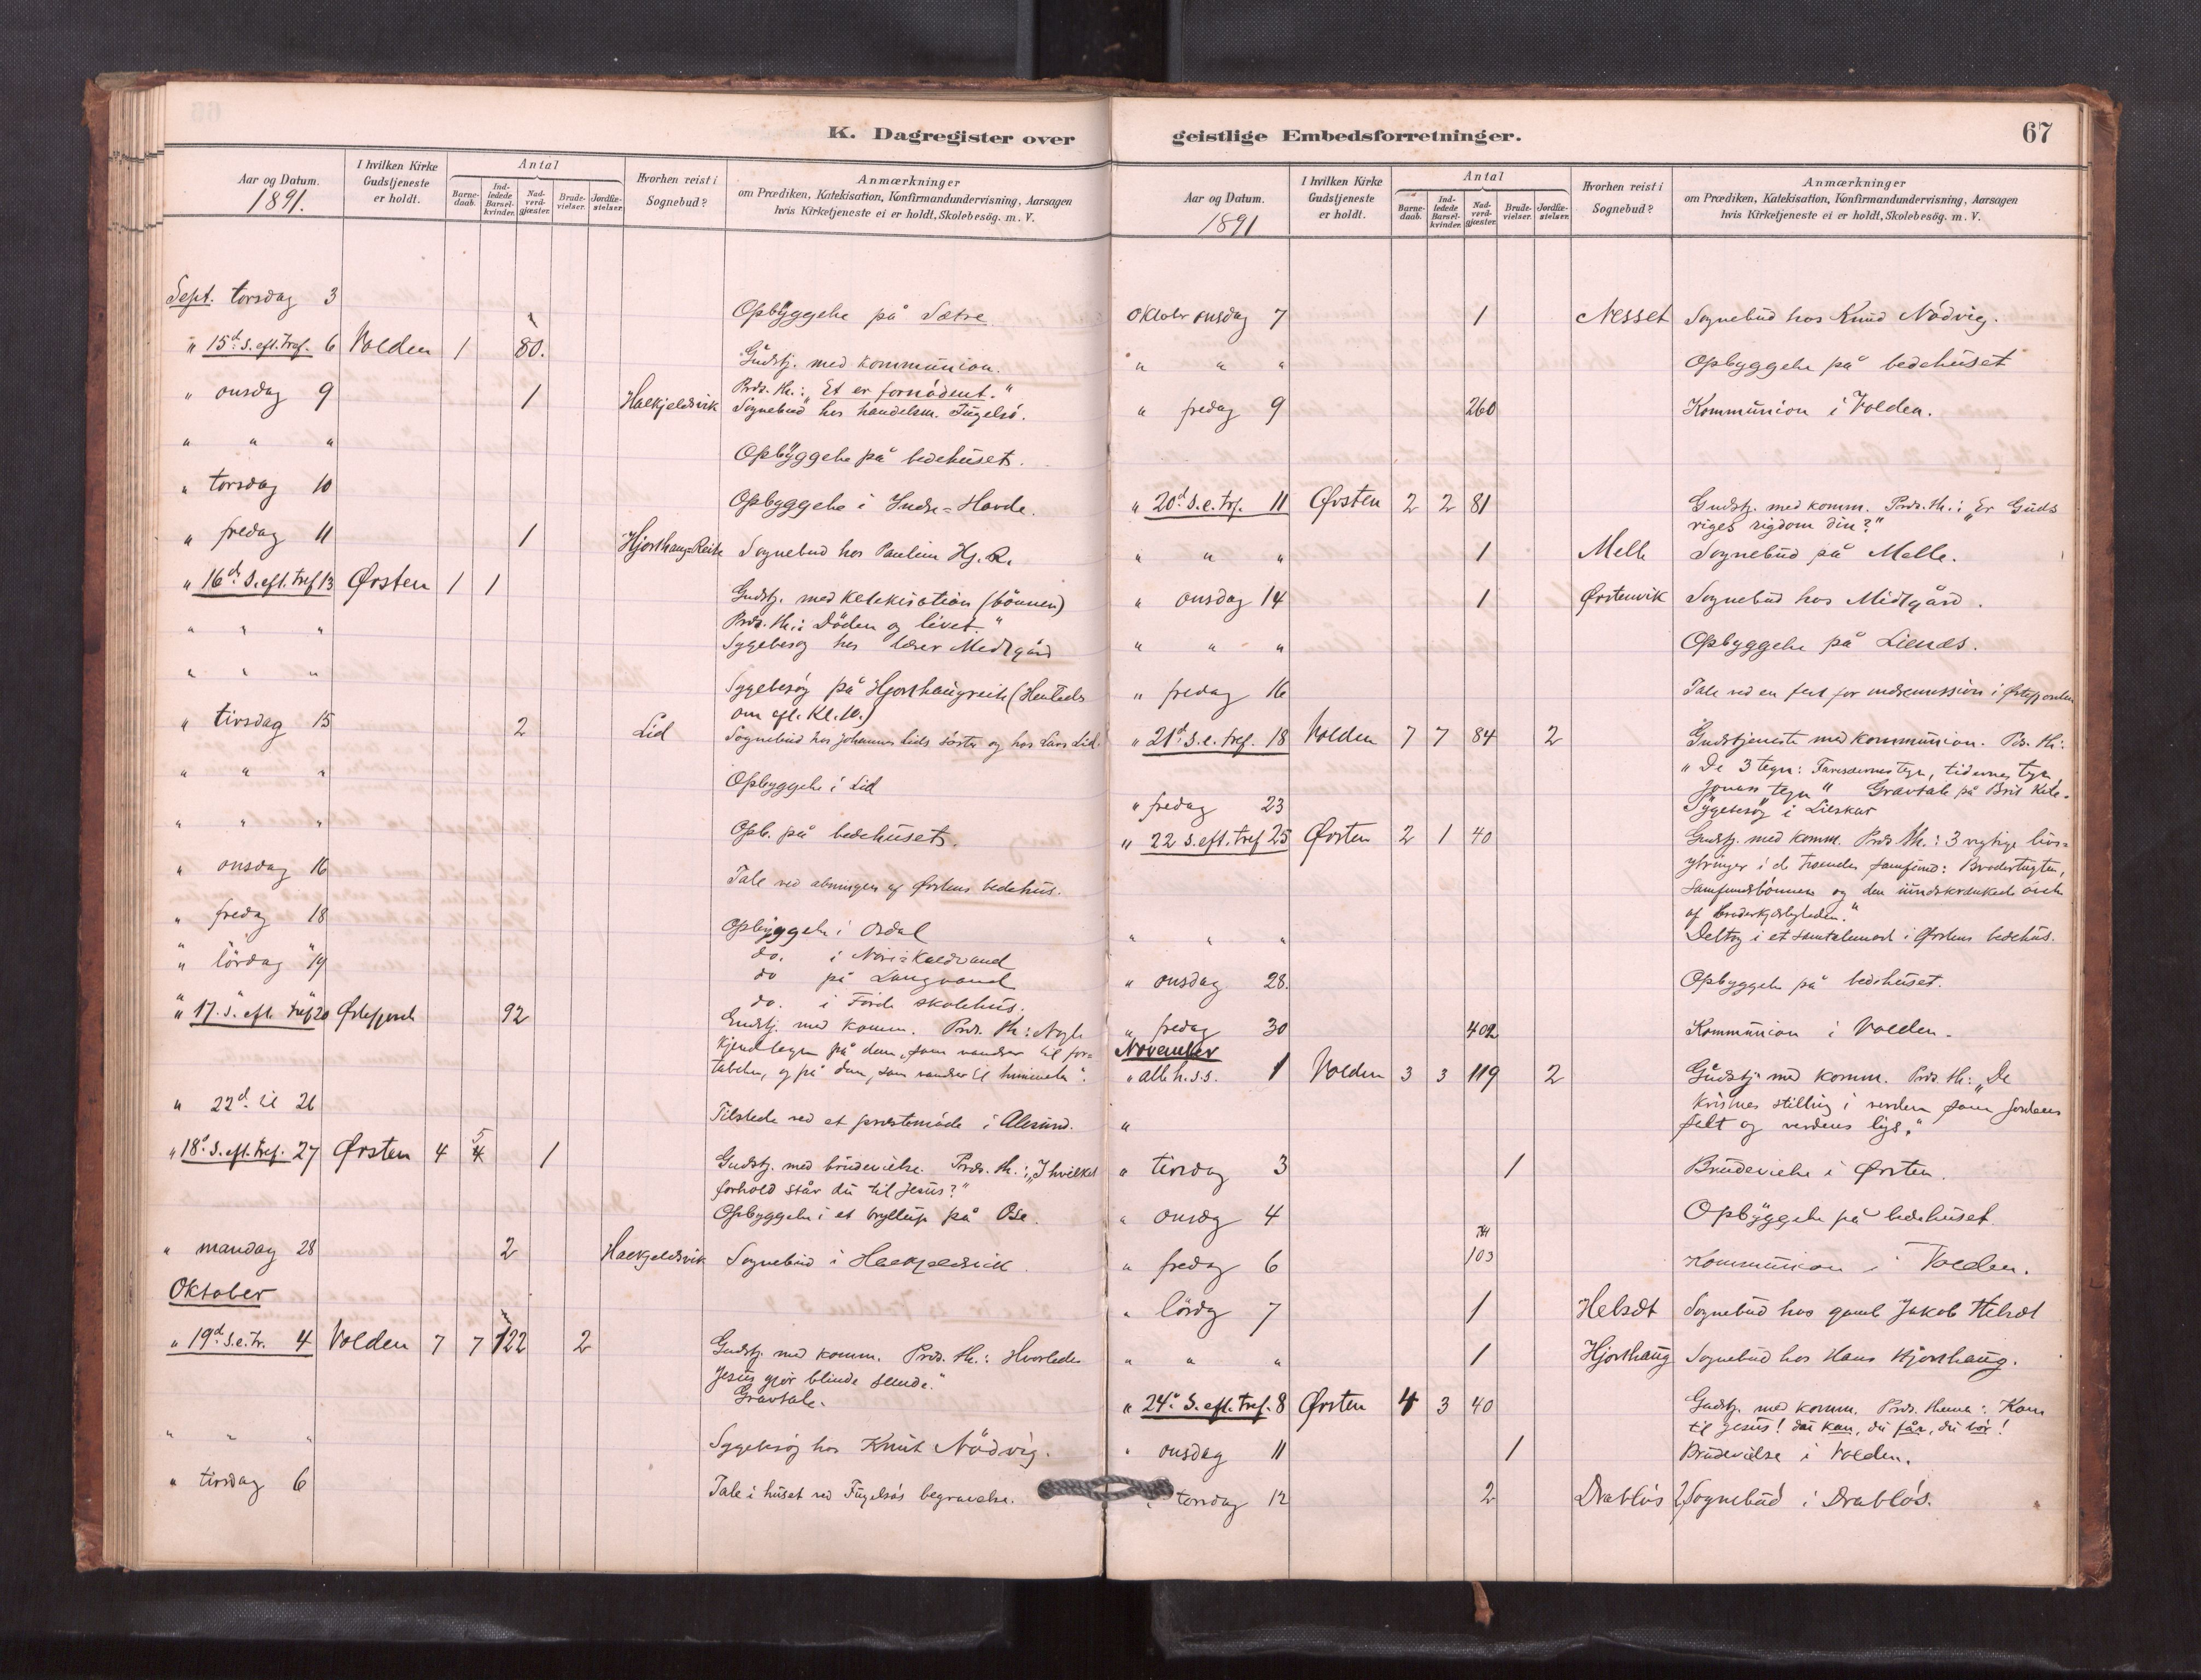 K. Dagregister over
Aar og Datum.
1891.
I hvilken Kirke Gudstjeneste er holdt.
Antal
Barne-daab.
Ind-ledede Barsel-kvinder.
Nad-verd-gjæster.
Brude-vielser.
Jordfæ-stelser.
Hvorhen reist i Sognebud?
Anmærkninger
om Prædiken, Katekisation, Konfirmandundervisning, Aarsagen
hvis Kirketjeneste ei er holdt, Skolebesög. m. V.
Sept. torsdag 3 Opbyggelse på Sætre
" 15d. S. eft. tref. 6 Volden 1 80. Gudstj. med kommunion.
Præd. th.: "Et er fornödent."
" onsdag 9 1 Sognebud hos handelsm.
" " " Opbyggelse på bedehuset.
" torsdag 10 Opbyggelse i Indre-Hovde.
" fredag 11 1 Hjorthaug-Reite Sognebud hos Pauline Hj. R.
" 16d. S. eft. tref 13 Ørsten 1 1 Gudstj. med katekisation (bönnen)
Præd. th.: Döden og livet."
" " " Sygebesög hos lærer Midtgård
" " " Sygebesög på Hjorthaugreite (Hentedes
om eft. kl. 10.)
" tirsdag 15 2 Lid Sognebud hos Johannes Lids söster og hos Lars Lid.
" " " Opbyggelse i Lid
" " " Opb. på bedehuset.
" onsdag 16 Tale ved åbningen af Ørstens bedehus.
" fredag 18 Opbyggelse i Osdal
" " " do. i
" lördag 19 do på Langvand
" " " do. i Förde skolehus.
" 17. S. eft. tref 20 92 Gudstj. med komm. Præd. th.: Nogle
kjendetegn på dem, som vandrer til for=
tabelse, og på dem, som vandrer til himmelen".
" 22d. til 26 Tilstede ved et præstemöde i Ålesund.
" 18d. S. eft. tref. 27 Ørsten 4 4 5 1 Gudstj. med brudevielse. Præd. th.: "I hvilket
forhold står du til Jesus?"
Opbyggelse i et bryllup på Ose.
" mandag 28 2 Halkjeldsvik Sognebud i Halkjeldsvik.
Oktober
" 19d. S. e. tr. 4 Volden 7 7 122 2 Gudstj. med komm. Præd. th.: Hvorledes
Jesus gjör blinde seende."
Gravtale.
" " " Sygebesög hos Knut Nödvig.
" tirsdag 6 Tale i huset ved begravelse.
geistlige Embedsforretninger.
67
Aar og Datum.
1891
I hvilken Kirke Gudstjeneste er holdt.
Antal
Barne-daab.
Ind-ledede Barsel-kvinder.
Nad-verd-gjæster.
Brude-vielser.
Jordfæ-stelser.
Hvorhen reist i Sognebud?
Anmærkninger
om Prædiken, Katekisation, Konfirmandundervisning, Aarsagen
hvis Kirketjeneste ei er holdt, Skolebesög. m. V.
Oktober onsdag 7 1 Nesset Sognebud hos Knud Nödvig.
" " " Opbyggelse på bedehuset
" fredag 9 260 Kommunion i Volden.
" 20d. S. e. trf. 11 Ørsten 2 2 81 Gudstj. med komm. Præd. th.: "Er Guds
riges rigdom din?"
" " " 1 Melle Sognebud på Melle.
" onsdag 14 1 Ørstenvik Sognebud hos Midtgård.
" " " Opbyggelse på Lienæs.
" fredag 16 Tale ved en fest for indremission i
" 21d. S. e. tref. 18 Volden 7 7 84 2 Gudstjeneste med kommunion. Pr. th:
"De 3 tegn: Farisæernes tegn, tidernes tegn,
Jonas tegn" Gravtale på Brit
" fredag 23 Sygebesög i Lieskar
" 22 S. eft. tref 25 Ørsten 2 1 40 Gudstj. med komm. Præd. th.: 3 vigtige livs=
ytringer i de troendes samfund: Brodertugten,
samfundsbönnen og den uindskrænkede
af broderkjærligheden."
" " " Deltog i et samtalemöde i Ørstens bedehus.
" onsdag 28. Opbyggelse på bedehuset.
" fredag 30 402 Kommunion i Volden.
November
" alle h. s. s. 1 Volden 3 3 119 2 Gudstj. med komm. Præd. th.: "De
kristnes stilling i verden som jordens
salt og verdens lys."
"
" tirsdag 3 1 Brudevielse i Ørsten.
" onsdag 4 Opbyggelse på bedehuset.
" fredag 6 103 Kommunion i Volden.
" lördag 7 1 Helsæt Sognebud hos gamle Jakob Helsæt
" " " 1 Hjorthaug Sognebud hos Hans Hjorthaug.
" 24d. S. eft. tref. 8 Ørsten 4 3 40 Gudstj. med komm. Præd. thema: Kom
til Jesus! du kan, du får, du bör!
" onsdag 11 1 Brudevielse i Volden.
" torsdag 12 2 Drabløs 2 Sognebud i Drabløs.